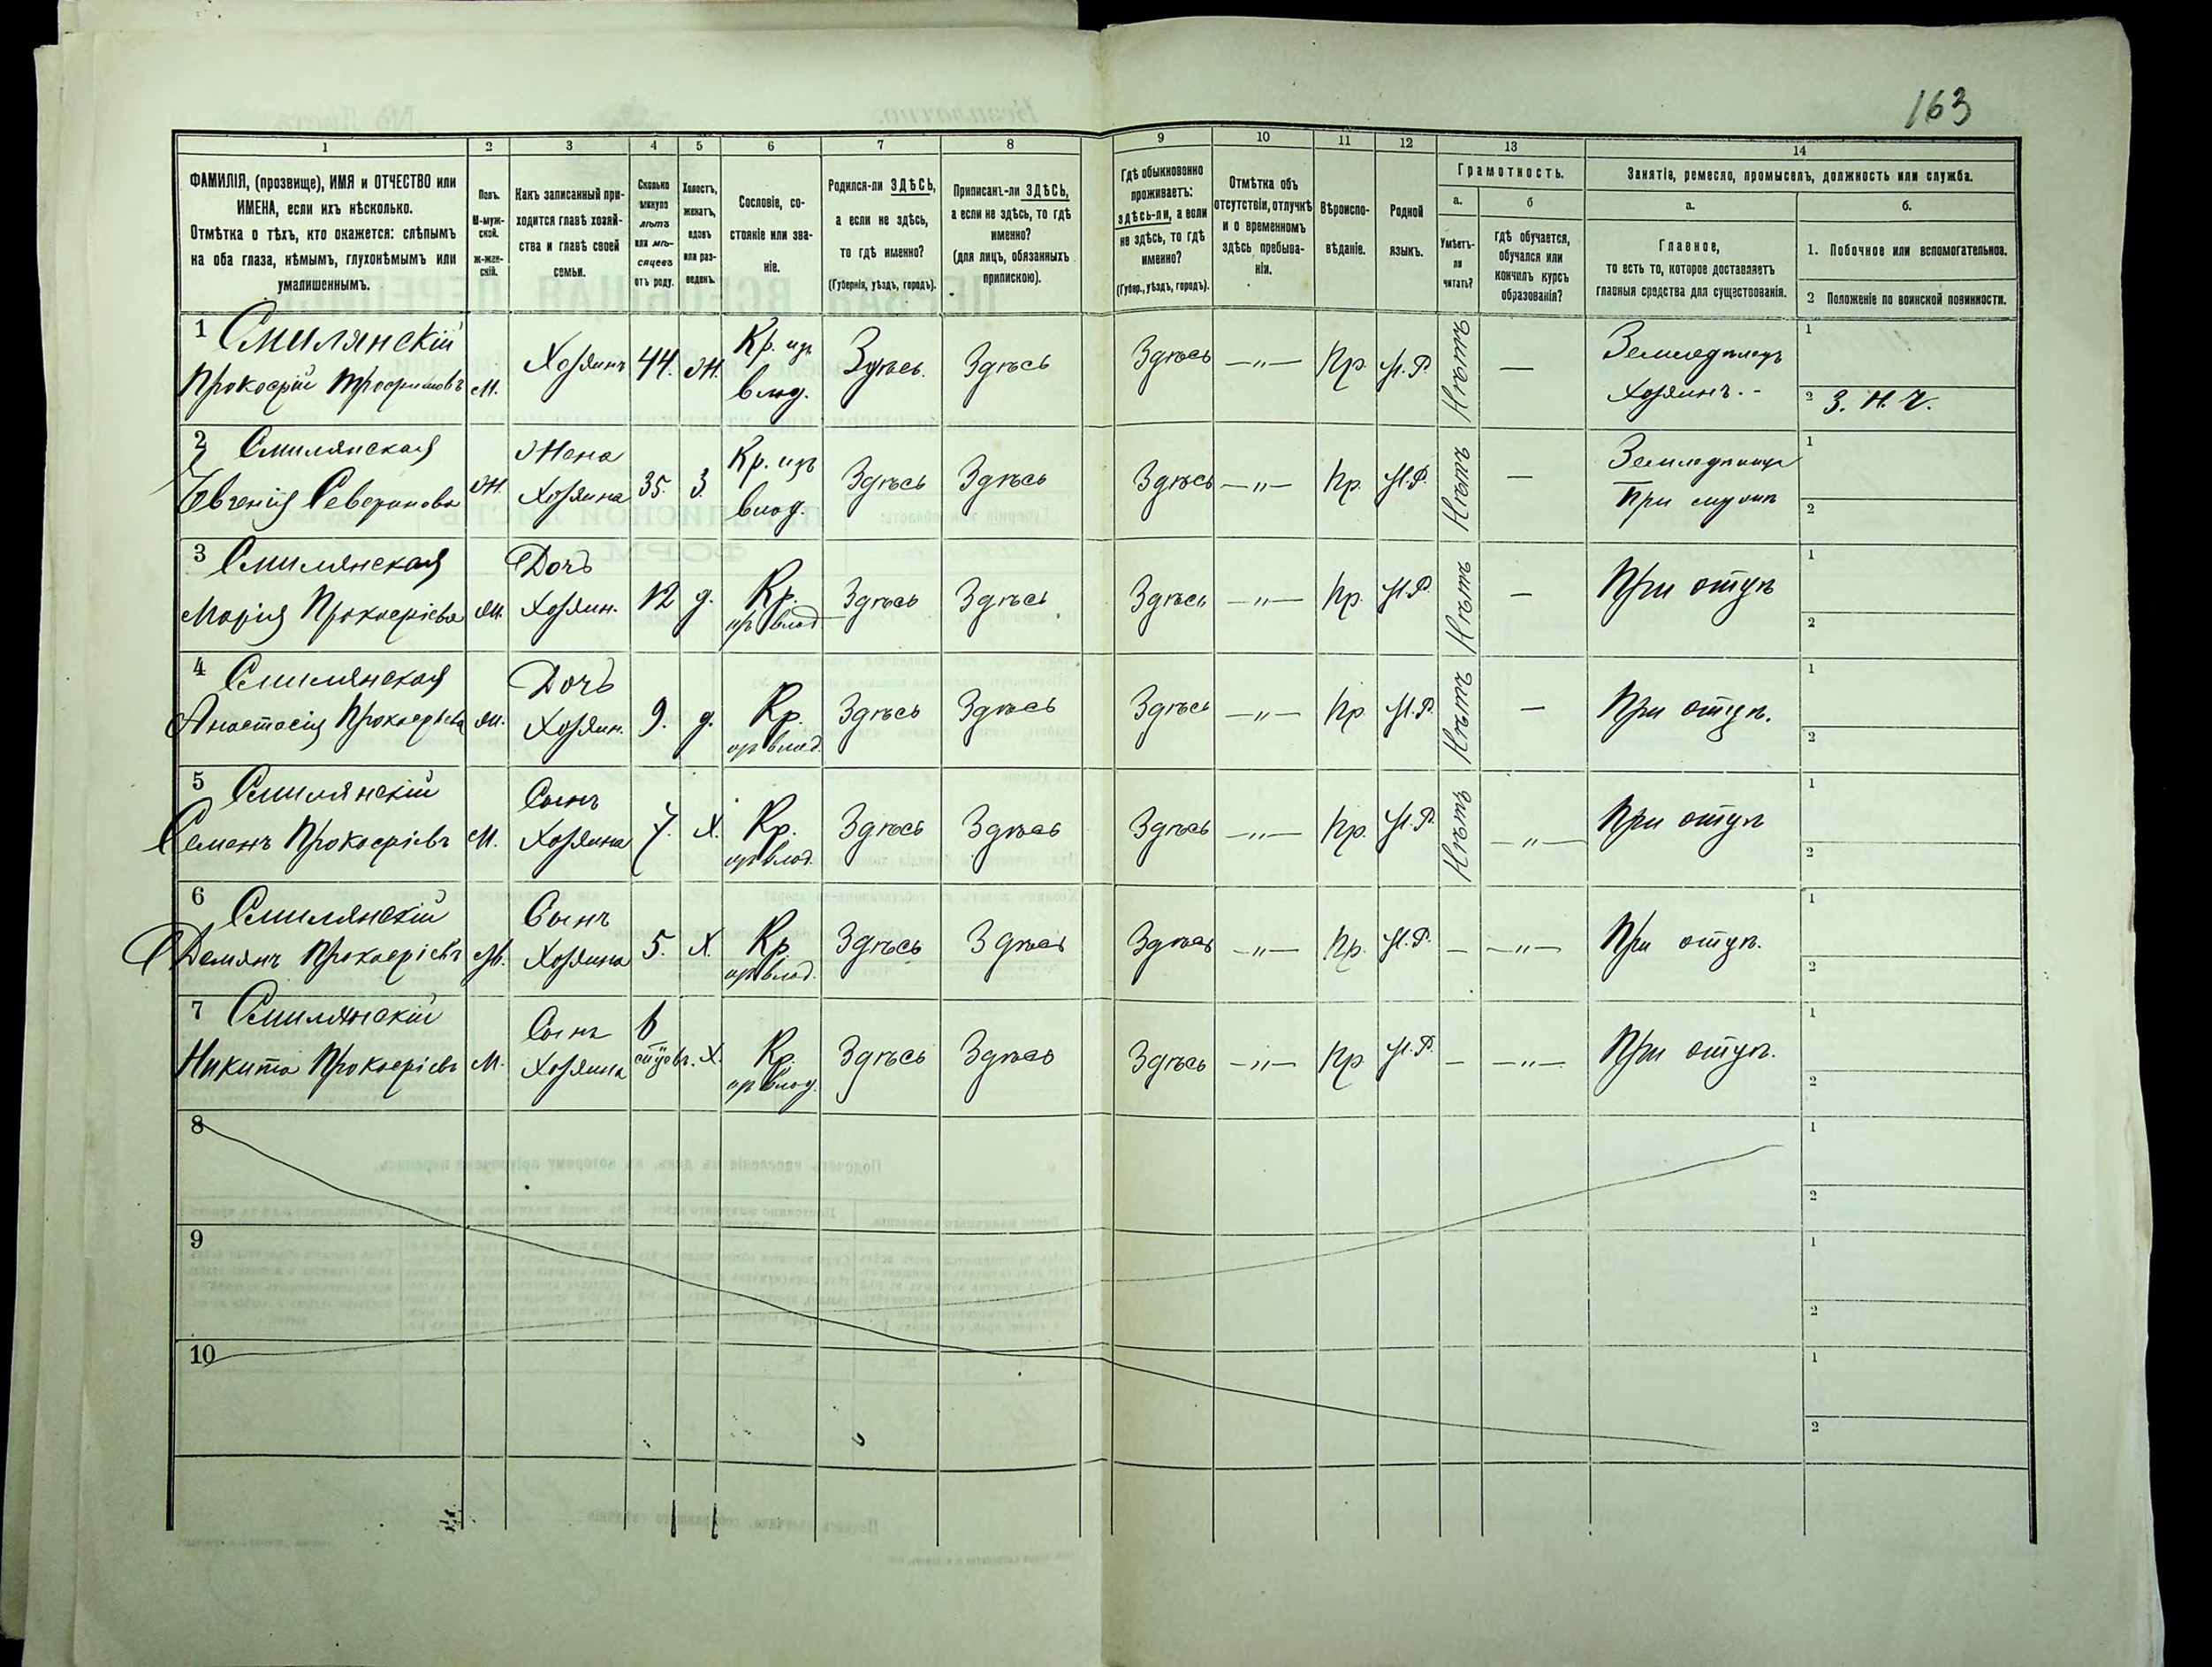 163
1 2 3 4 5 6 7 8 9 10 11 12 13 14
ФАМИЛІЯ, (прозвище), ИМЯ и ОТЧЕСТВО или
ИМЕНА, если ихъ нѣсколько.
Отмѣтка о тѣхъ, кто окажется: слѣпымъ
на оба глаза, нѣмымъ, глухонѣмымъ или
умалишеннымъ.
Полъ.
М-муж-
ской.
ж-жен-
скій.
Какъ записанный при-
ходится главѣ хозяй-
ства и главѣ своей
семьи.
Сколько
минуло
лѣтъ
или мѣ-
сяцевъ
отъ роду.
Холостъ,
женатъ,
вдовъ
или раз-
веденъ.
Сословіе, со-
стояніе или зва-
ніе.
Родился-ли ЗДѢСЬ,
а если не здѣсь,
то гдѣ именно?
(Губернія, уѣздъ, городъ).
Приписанъ-ли ЗДѢСЬ,
а если не здѣсь, то гдѣ
именно?
(для лицъ, обязанныхъ
припискою).
Гдѣ обыкновенно
проживаетъ:
здѣсь-ли, а если
не здѣсь, то гдѣ
именно?
(Губер., уѣздъ, городъ).
Отмѣтка объ
отсутствіи, отлучкѣ
и о временномъ
здѣсь пребыва-
ніи.
Вѣроиспо-
вѣданіе.
Родной
языкъ.
Грамотность.
а.
Умѣетъ-
ли
читать?
б
гдѣ обучается,
обучался или
кончилъ курсъ
образованія?
Занятіе, ремесло, промыселъ, должность или служба.
а.
Главное,
то есть то, которое доставляетъ
главныя средства для существованія.
б.
1. Побочное или вспомогательное.
2 Положеніе по воинской повинности.
1 Смилянскій
Прокофій Трофимовъ М. Хозяинъ 44. Ж. Кр. изъ влад. Здѣсь. Здѣсь Здѣсь —„— Пр. М.Р. Нѣтъ — Земледѣлецъ
Хозяинъ.-
1
2 З. Н. Ч.
2 Смилянская
Евгенія Северинова Ж. Жена Хозяина 35. З. Кр. изъ влад. Здѣсь Здѣсь Здѣсь —„— Пр. М.Р. Нѣтъ — Земледѣлица
При мужѣ
1
2
3 Смилянская
Марія Прокофіева Ж. Дочь Хозяин. 12 д. Кр. изъ влад. Здѣсь Здѣсь Здѣсь —„— Пр. М.Р. Нѣтъ — При отцѣ
1
2
4 Смилянская
Анастасія Прокофіева Ж. Дочь Хозяин. 9. д. Кр. изъ влад. Здѣсь Здѣсь Здѣсь —„— Пр. М.Р. Нѣтъ — При отцѣ.
1
2
5 Смилянскій
Семенъ Прокофіевъ М. Сынъ Хозяина 7. Х. Кр. изъ влад. Здѣсь Здѣсь Здѣсь —„— Пр. М.Р. Нѣтъ —„— При отцѣ
1
2
6 Смилянскій
Демянъ Прокофіевъ М. Сынъ Хозяина 5. Х. Кр. изъ влад. Здѣсь Здѣсь Здѣсь —„— Пр. М.Р. — —„— При отцѣ.
1
2
7 Смилянскій
Никита Прокофіевъ М. Сынъ Хозяина Х. Кр. изъ влад. Здѣсь Здѣсь Здѣсь —„— Пр. М.Р. — —„— При отцѣ.
1
2
8
1
2
9
1
2
10
1
2